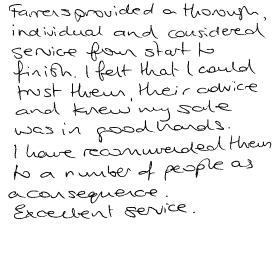 Farrers provided a thorough,
individual and considered
service from start to
finish. I felt that I could
trust them, their advice
and knew my sale
was in good hands.
I have recommended them
to a number of people as
a consequence.
Excellent service.